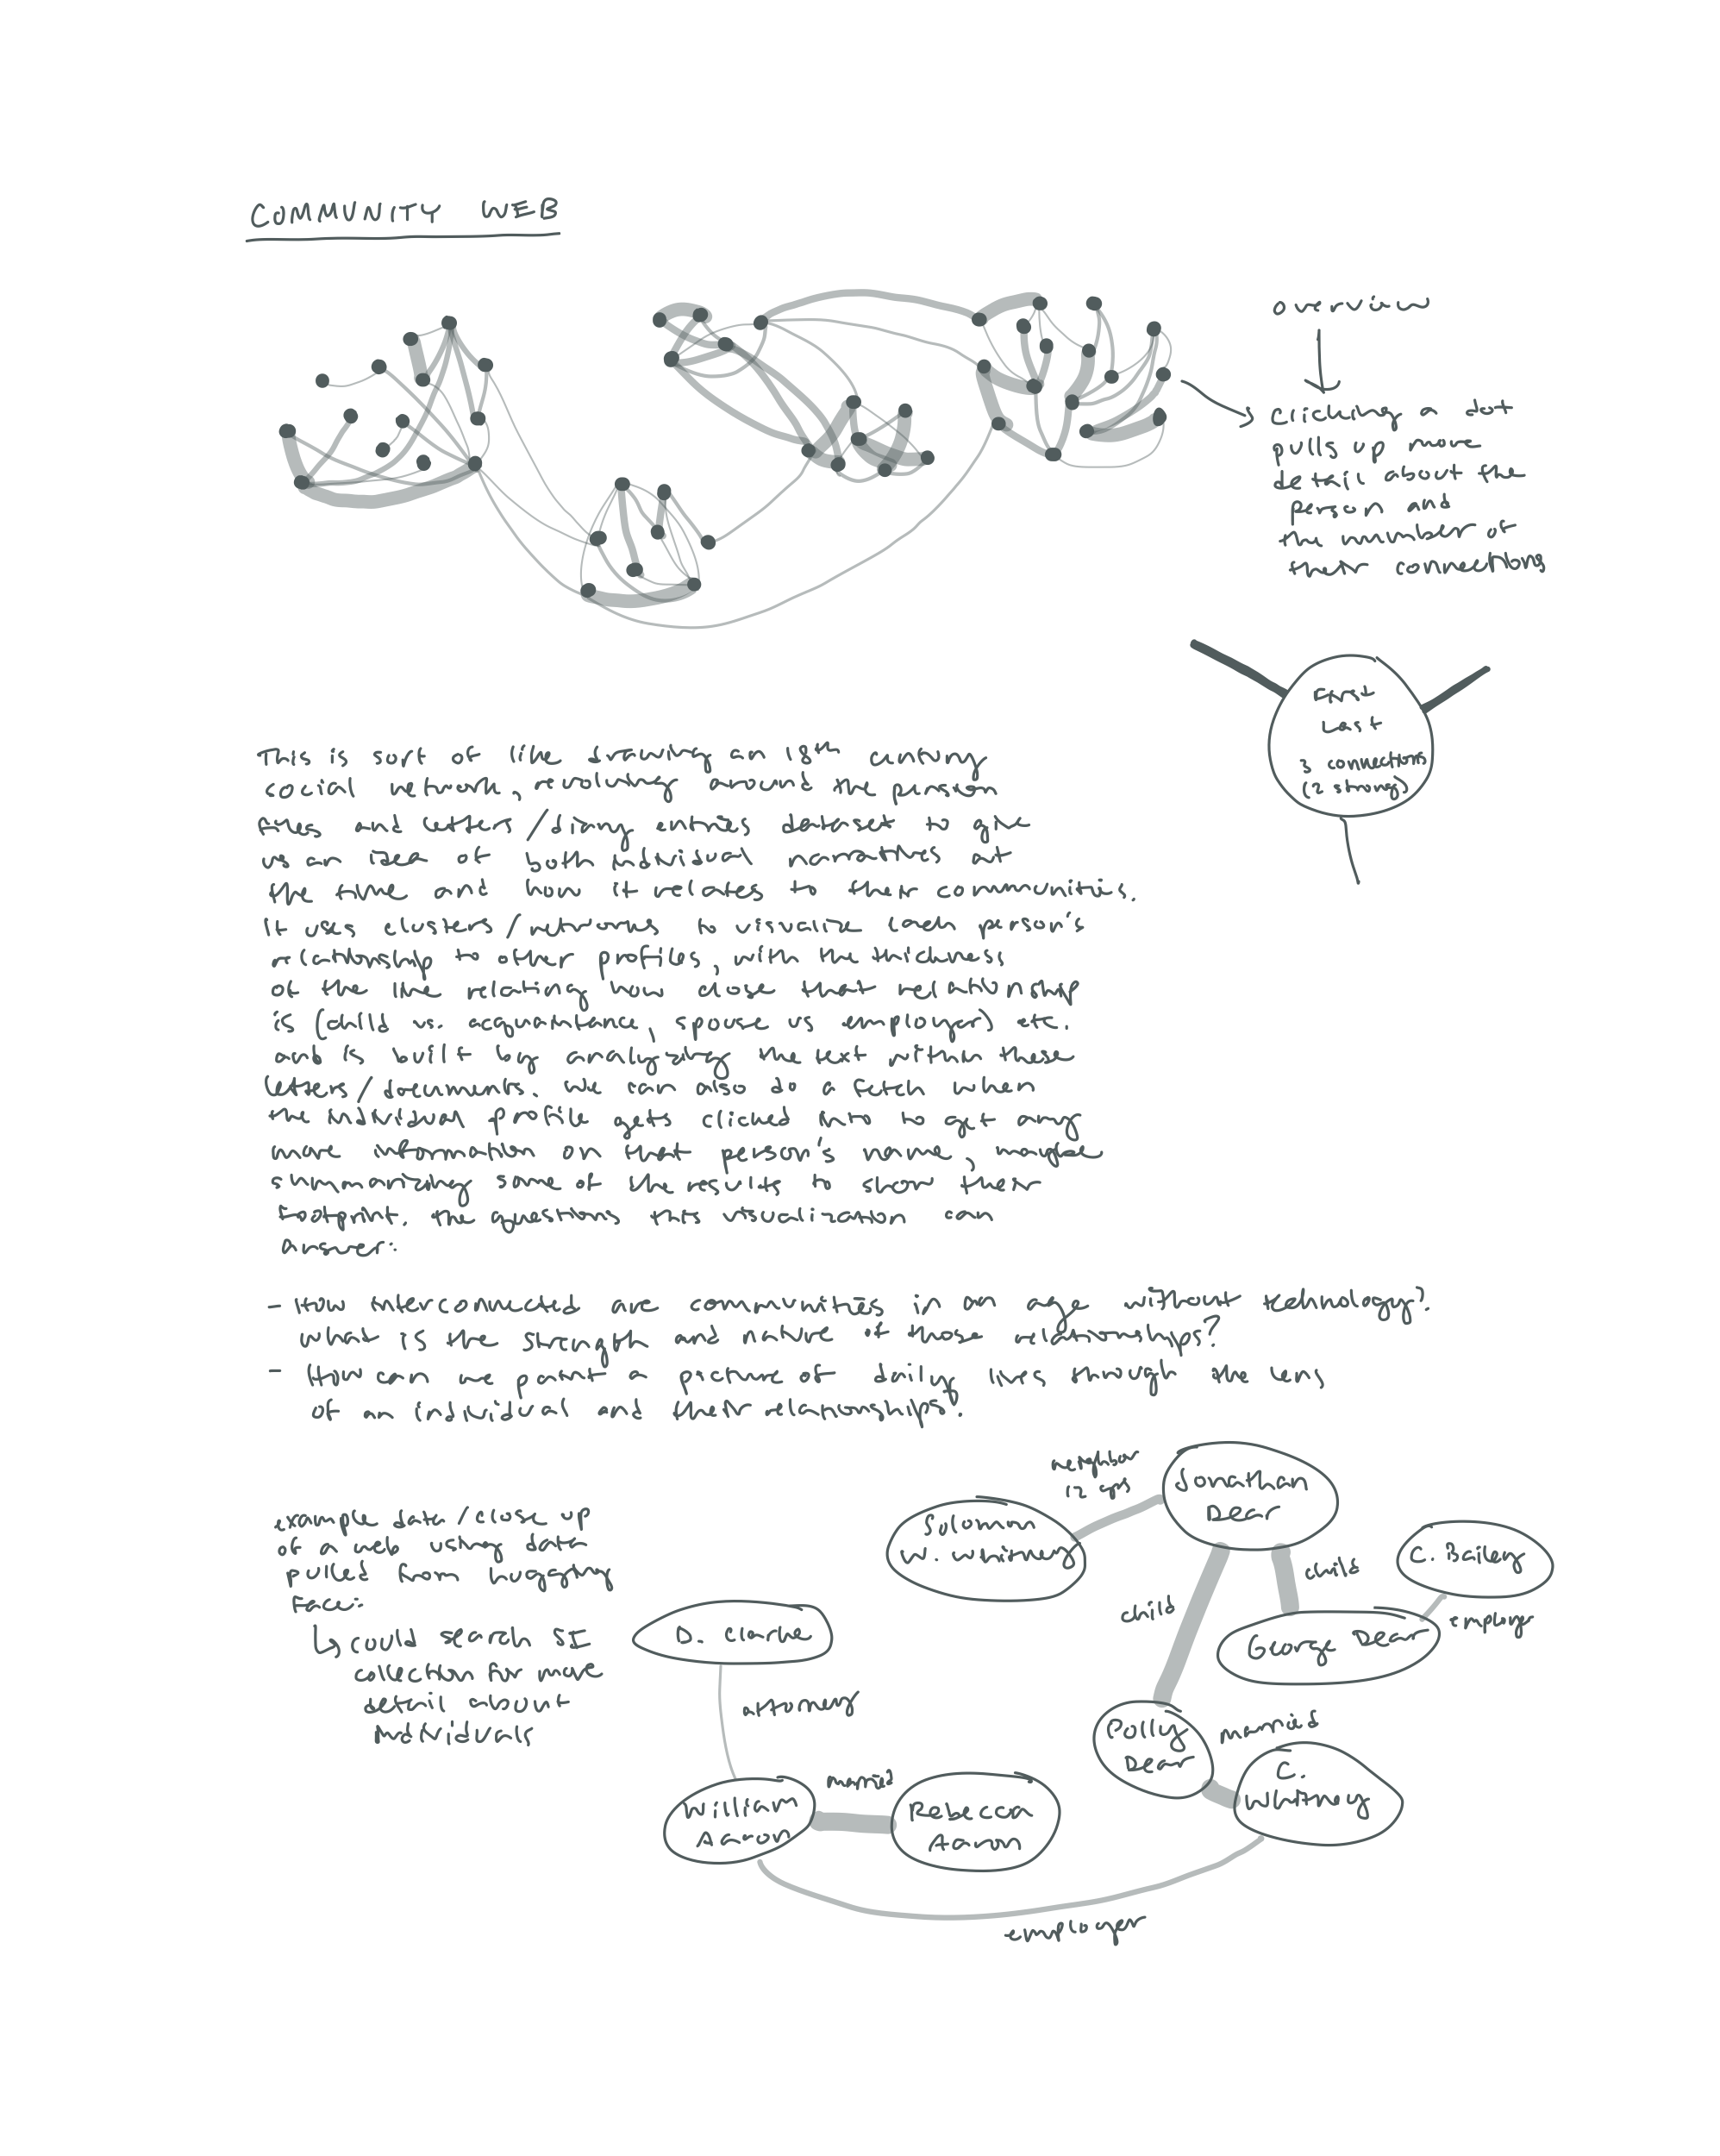 COMMUNITY WEB
overview
clicking a dot
pulls up more
detail about the
person and
the number of
their connections
First
Last
3 connections
(2 strong)
This is sort of like drawing an 18th century
social network, revolving around the pension
files and letters/diary entries dataset to give
us an idea of both individual narratives at
the time and how it relates to their communities.
It uses clusters/networks to visualize each person's
relationship to other profiles, with the thickness
of the line relating how close that relationship
is (child vs. acquaintance, spouse vs employer) etc.
and is built by analyzing the text within these
letters/documents. We can also do a fetch when
the individual profile gets clicked into to get any
more information on that person's name, maybe
summarizing some of the results to show their
footprint. The questions this visualization can
answer:
- How interconnected are communities in an age without technology?
What is the strength and nature of those relationships?
- How can we paint a picture of daily lives through the lens
of an individual and their relationships?
example data/close up
of a web using data
pulled from hugging
face:
could search SI
collection for more
detail about
individuals
neighbor
12 yrs
Jonathan
Dear
Solomon
W. Whitney
child
child
C. Bailey
George Dear
employer
D. Clarke
attorney
Polly
Dear
married
C.
Whitney
William
Aaron
married
Rebecca
Aaron
employer